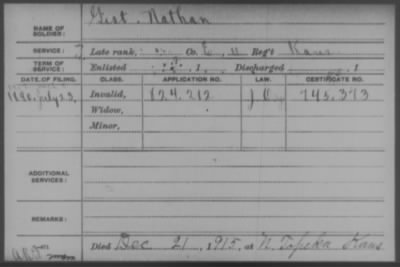 Gist Nathan
NAME OF SOLDIER:
SERVICE: Late rank, Co. E, 11 Reg't Kans
TERM OF SERVICE: Enlisted , 1 Discharged , 1
DATE OF FILING. CLASS. APPLICATION NO. LAW. CERTIFICATE NO.
1890, July 23, Invalid, 824.212 745.373
Widow,
Minor,
ADDITIONAL SERVICES:
REMARKS:
Died Dec 21, 1915, at N. Topeka Kans